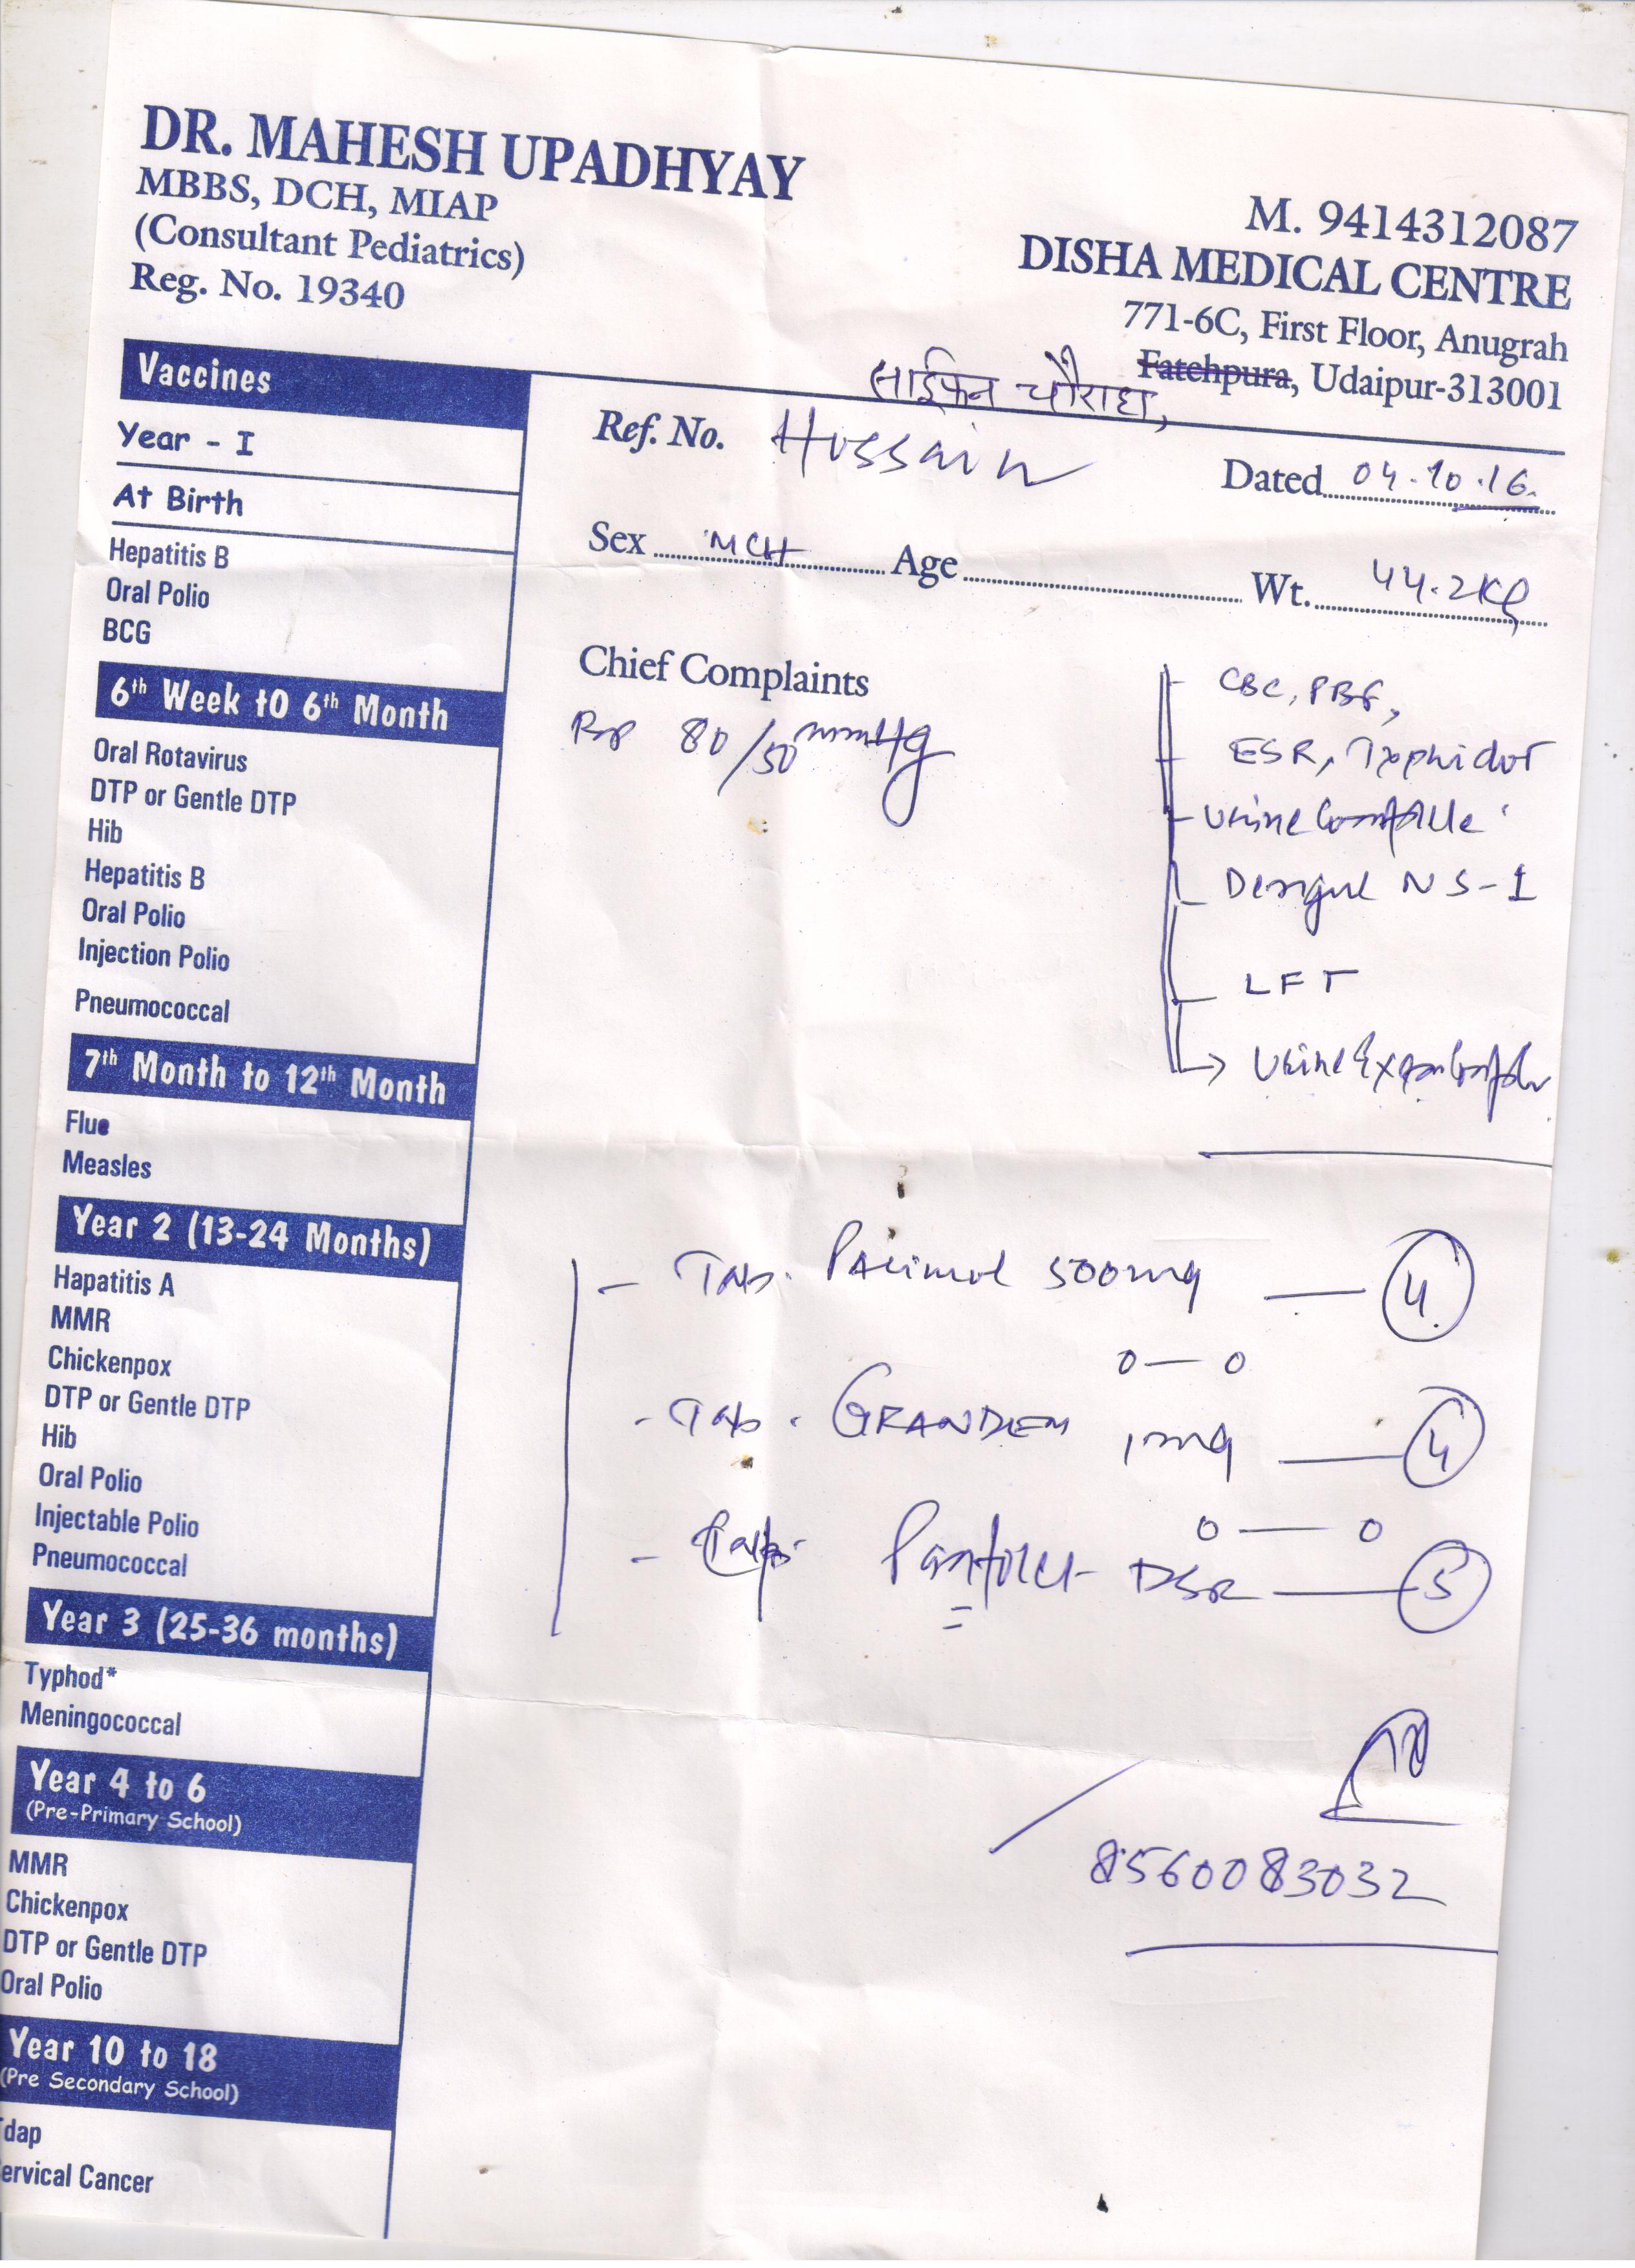 DR. MAHESH UPADHYAY
MBBS, DCH, MIAP
(Consultant Pediatrics)
Reg. No. 19340
M. 9414312087
DISHA MEDICAL CENTRE
771-6C, First Floor, Anugrah
साईफन चौराहा, Fatehpura, Udaipur-313001
Vaccines
Year - I
At Birth
Hepatitis B
Oral Polio
BCG
6th Week t0 6th Month
Oral Rotavirus
DTP or Gentle DTP
Hib
Hepatitis B
Oral Polio
Injection Polio
Pneumococcal
7th Month to 12th Month
Flue
Measles
Year 2 (13-24 Months)
Hapatitis A
MMR
Chickenpox
DTP or Gentle DTP
Hib
Oral Polio
Injectable Polio
Pneumococcal
Year 3 (25-36 months)
Typhod*
Meningococcal
Year 4 to 6
(Pre-Primary School)
MMR
Chickenpox
DTP or Gentle DTP
Oral Polio
Year 10 to 18
(Pre Secondary School)
dap
ervical Cancer
Ref. No. Hussain
Dated 04.10.16.
Sex MCH Age Wt. 44.2Kg
Chief Complaints
80/50 mmHg
CBC, PBF,
ESR, Typhidot
Urine Complete
Dengue NS-1
LFT
Urine Exam
Tab. Pacimol 500mg — 4
0 — 0
- Tab. GRANDEM 1mg — 4
0 — 0
- Cap. DSR — 5
8560083032